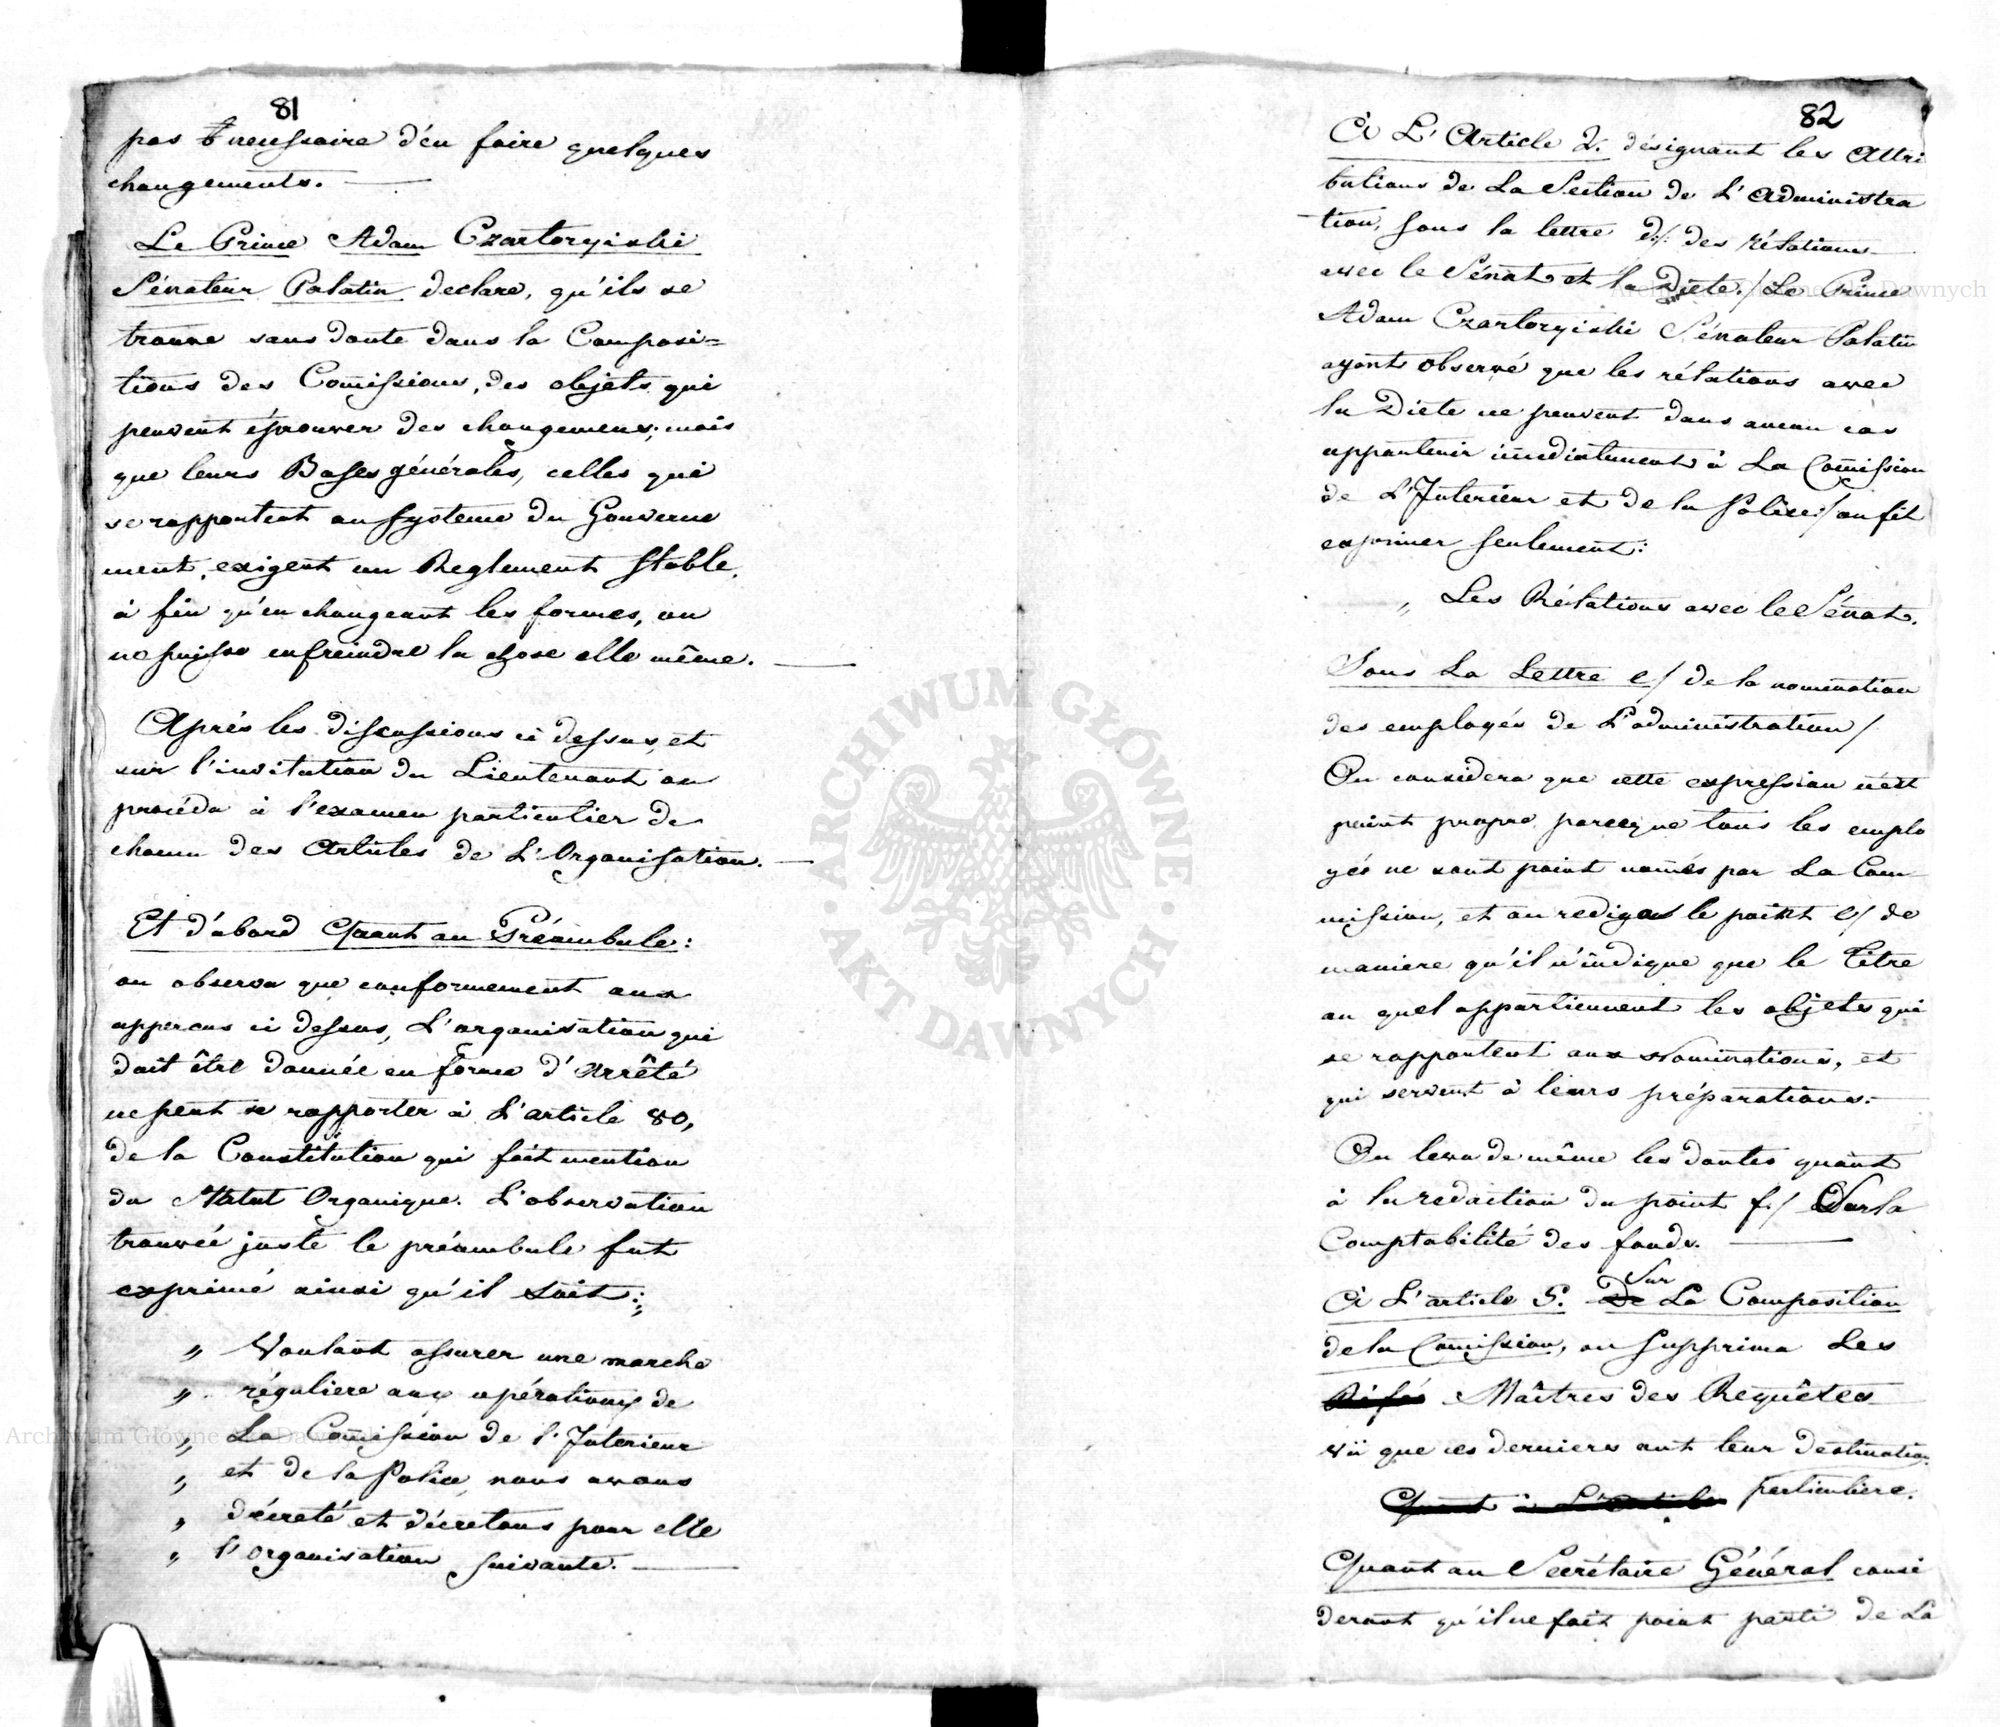 81
pas necessaire d'en faire quelques
changements.
Le Prince Adam Czartoryiski
Sénateur Palatin declare, qu'ils se
trouve sans doute dans la Composi=
tions des Comissions, des objets qui
peuvent éprouver des changemens; mais
que leurs Bases générales, celles qui
se rapportent au Systeme du Gouverne
ment, exigent un Reglement Stable,
à fin qu'en changeant les formes, on
ne puisse enfreindre la chose elle même.
Après les discussions ci dessus, et
sur l'invitation du Lieutenant on
procéda à l'examen particulier de
chacun des Articles de L'Organisation.
Et d'abord Quant au Préambule:
on observa que conformement aux
apperçus ci dessus, L'organisation qui
doit être donnée en forme d'Arrêté
ne peut se rapporter à L'article 80,
de la Constitution qui fait mention
du Statut Organique. L'observation
trouvée juste le préambule fut
exprimé ainsi qu'il suit:
„ Voulant assurer une marche
„ réguliere aux opérations de
„ La Comission de l'Interieur
„ et de la Police, nous avons
„ décreté et décretons pour elle
„ l'organisation suivante.
82
à L'Article 2. désignant les Attri
butions de La Section de L'Administra
-tion, sous la lettre d./. des rélations
avec le Sénat et la Diete./ Le Prince
Adam Czartoryiski Sénateur Palatin
ayant observé que les rélations avec
la Diete ne peuvent dans aucun cas
appartenir imediatement à La Comission
de L'Interieur et de la Police/ on fit
exprimer seulement:
„ Les Rélations avec le Sénat.
Sous La Lettre e/ de la nomination
des employés de L'administration/
On considera que cette expression n'est
point propre parceque tous les emplo
yés ne sont point només par La Com
mission, et on redigea le point e/ de
maniere qu'il n'indique que le Titre
au quel appartiennent les objets qui
se rapportent aux Nominations, et
qui servent à leurs préparations.
On leva de même les doutes quant
à la redaction du point f./ Sur la
Comptabilité des fonds.
Sur
à L'article 5. De La Composition
de la Comission, on supprima Les
Maîtres des Requêtes
vû que ces derniers ont leur destination
Quant à L'article particuliere.
Quant au Secrétaire Général consi
derant qu'il ne fait point parti de La